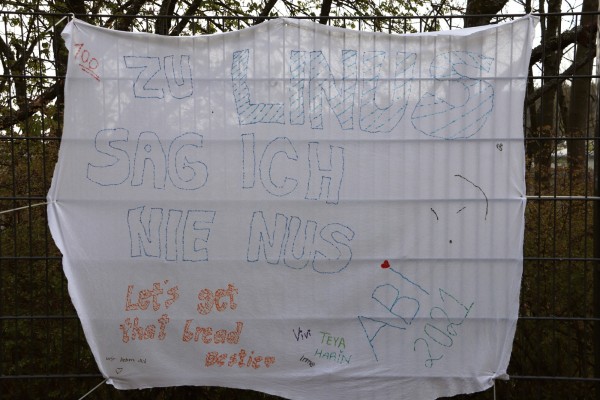 100
ZU LINUS
SAG ICH
NIE NUS
Let's get
that bread
Bestier
Vivi
TEYA
HAATN
ABI
2021